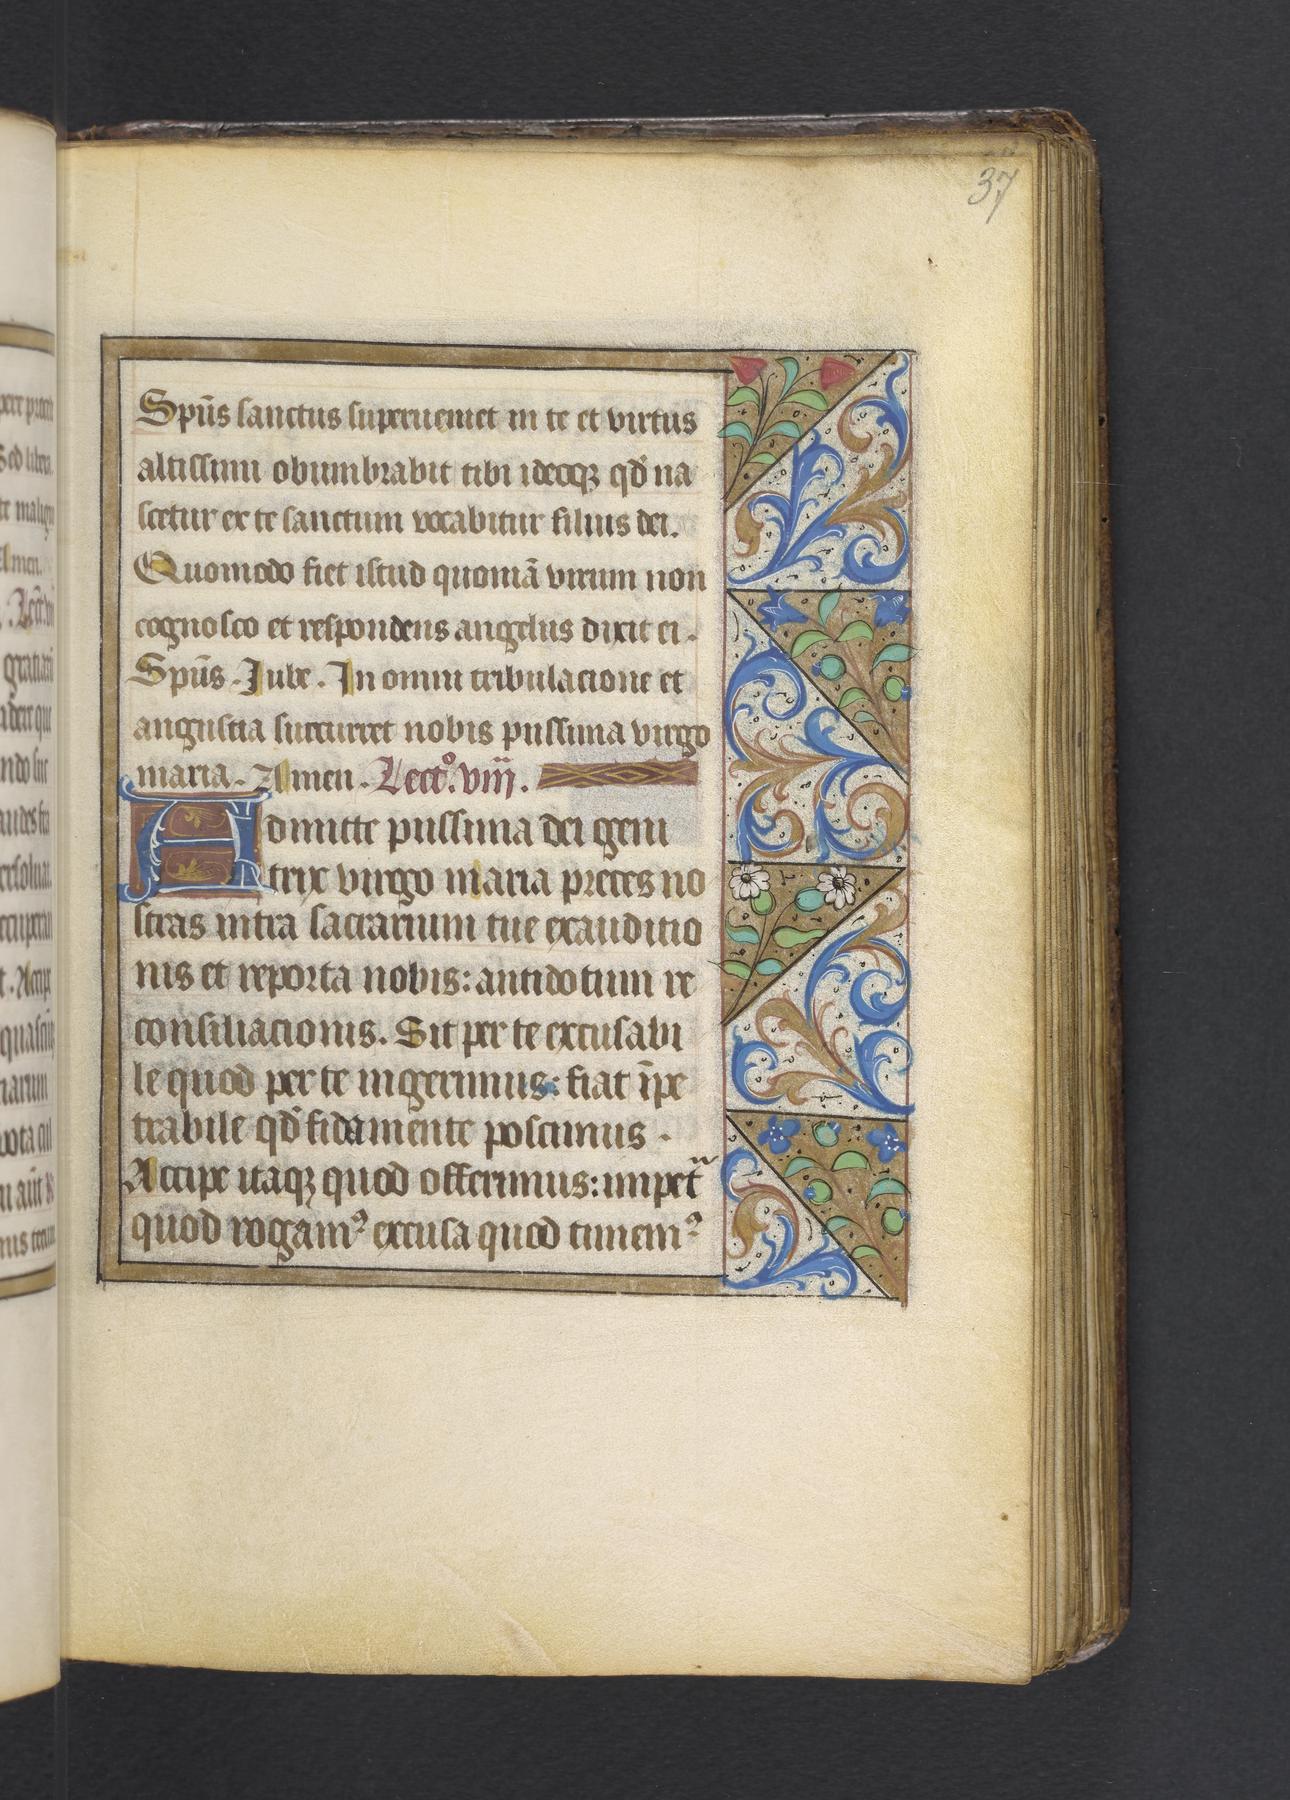 37
Spūs sanctus superueniet in te et virtus
altissimi obumbrabit tibi ideoqꝫ qd̄ na
scetur ex te sanctum vocabitur filius dei.
Quomodo fiet istud quoniā virum non
cognosco et respondens angelus dixit ei.
Spūs. Jube. In omni tribulacione et
angustia succurret nobis piissima virgo
maria. Amen. Lectº. viii.
Admitte piissima dei geni
trix virgo maria preces no
stras intra sacrarium tue exauditio
nis et reporta nobis: antidotum re
consiliacionis. Sit per te excusabi
le quod per te ingerimus: fiat īpe
trabile qd̄ fida mente poscimus.
Accipe itaqꝫ quod offerimus: impet̄
quod rogamꝰ excusa quod timemꝰ